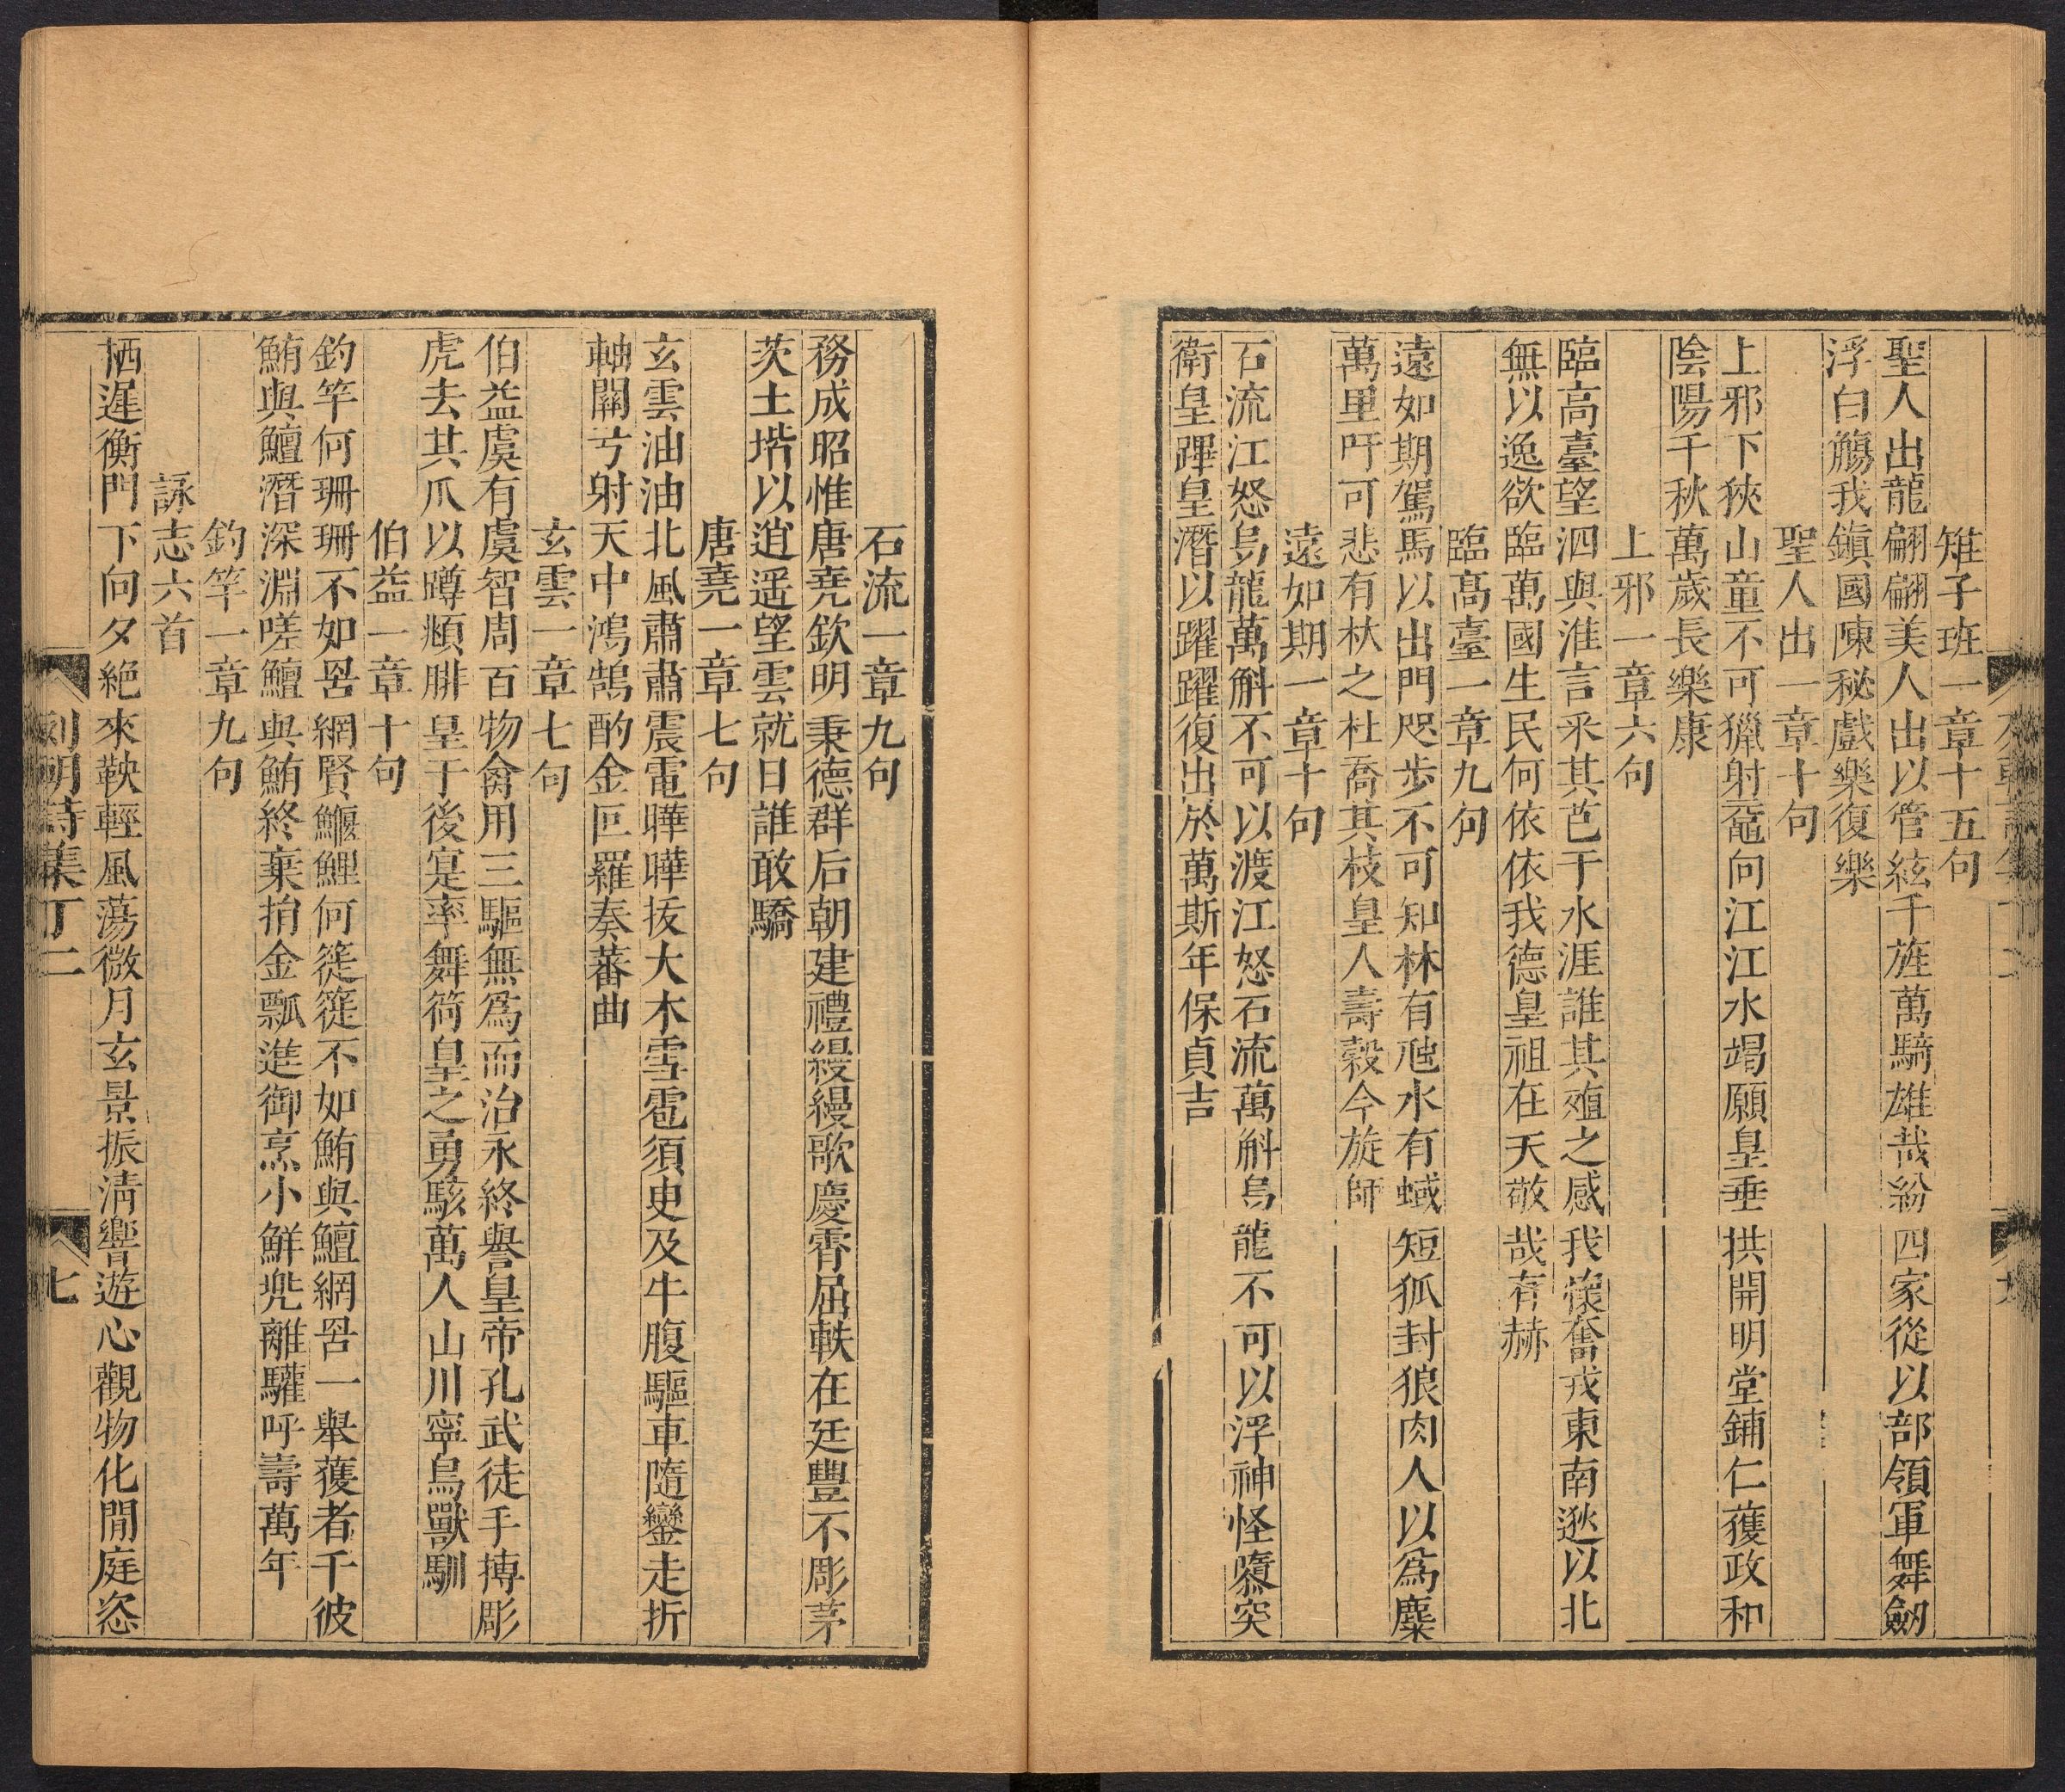 雉子班一章十五句
聖人出龍翩翩美人出以管絃千旌萬騎雄哉紛四家從以部領軍舞劒
浮白觴我鎮國陳秘戲樂復樂
聖人出一章十句
上邪下狹山童不可獵射黿向江江水竭願皇垂拱開明堂鋪仁獲政和
陰陽千秋萬歲長樂康
上邪一章六句
臨高臺望泗與淮言采其芑于水涯誰其殖之感我懷奮戎東南逖以北
無以逸欲臨萬國生民何依依我德皇祖在天敬哉有赫
臨髙臺一章九句
遠如期駕馬以出門咫步不可知林有虺水有蜮短狐封狼肉人以爲麋
萬里吁可悲有杕之杜喬其枝皇人壽穀今旋師
遠如期一章十句
石流江怒烏龍萬斛不可以渡江怒石流萬斛烏龍不可以浮神怪隳突
衛皇蹕皇潛以躍躍復出於萬斯年保貞吉
石流一章九句
務成昭惟唐堯欽明秉德群后朝建禮縵縵歌慶霄屈軼在廷豐不彫茅
茨土堦以逍遥望雲就日誰敢驕
唐堯一章七句
玄雲油油北風肅肅震電曄曄拔大木雪雹須臾及牛腹驅車隨鑾走折
軸關弓射天中鴻鵠酌金叵羅奏蕃曲
玄雲一章七句
伯益虞有虞智周百物禽用三驅無爲而治永終譽皇帝孔武徒手搏彫
虎去其爪以蹲頫腓皇于後寔率舞衛皇之勇駭萬人山川寧鳥獸馴
伯益一章十句
釣竿何珊珊不如罟網賢鰋鯉何簁簁不如鮪與鱣網罟一舉獲者千彼
鮪與鱣潛深淵嗟鱣與鮪終棄捐金瓢進御烹小鮮兠離驩呼壽萬年
釣竿一章九句
詠志六首
栖遲衡門下向夕絶來鞅輕風蕩微月玄景振淸響遊心觀物化閒庭恣
列朝詩集丁二
七